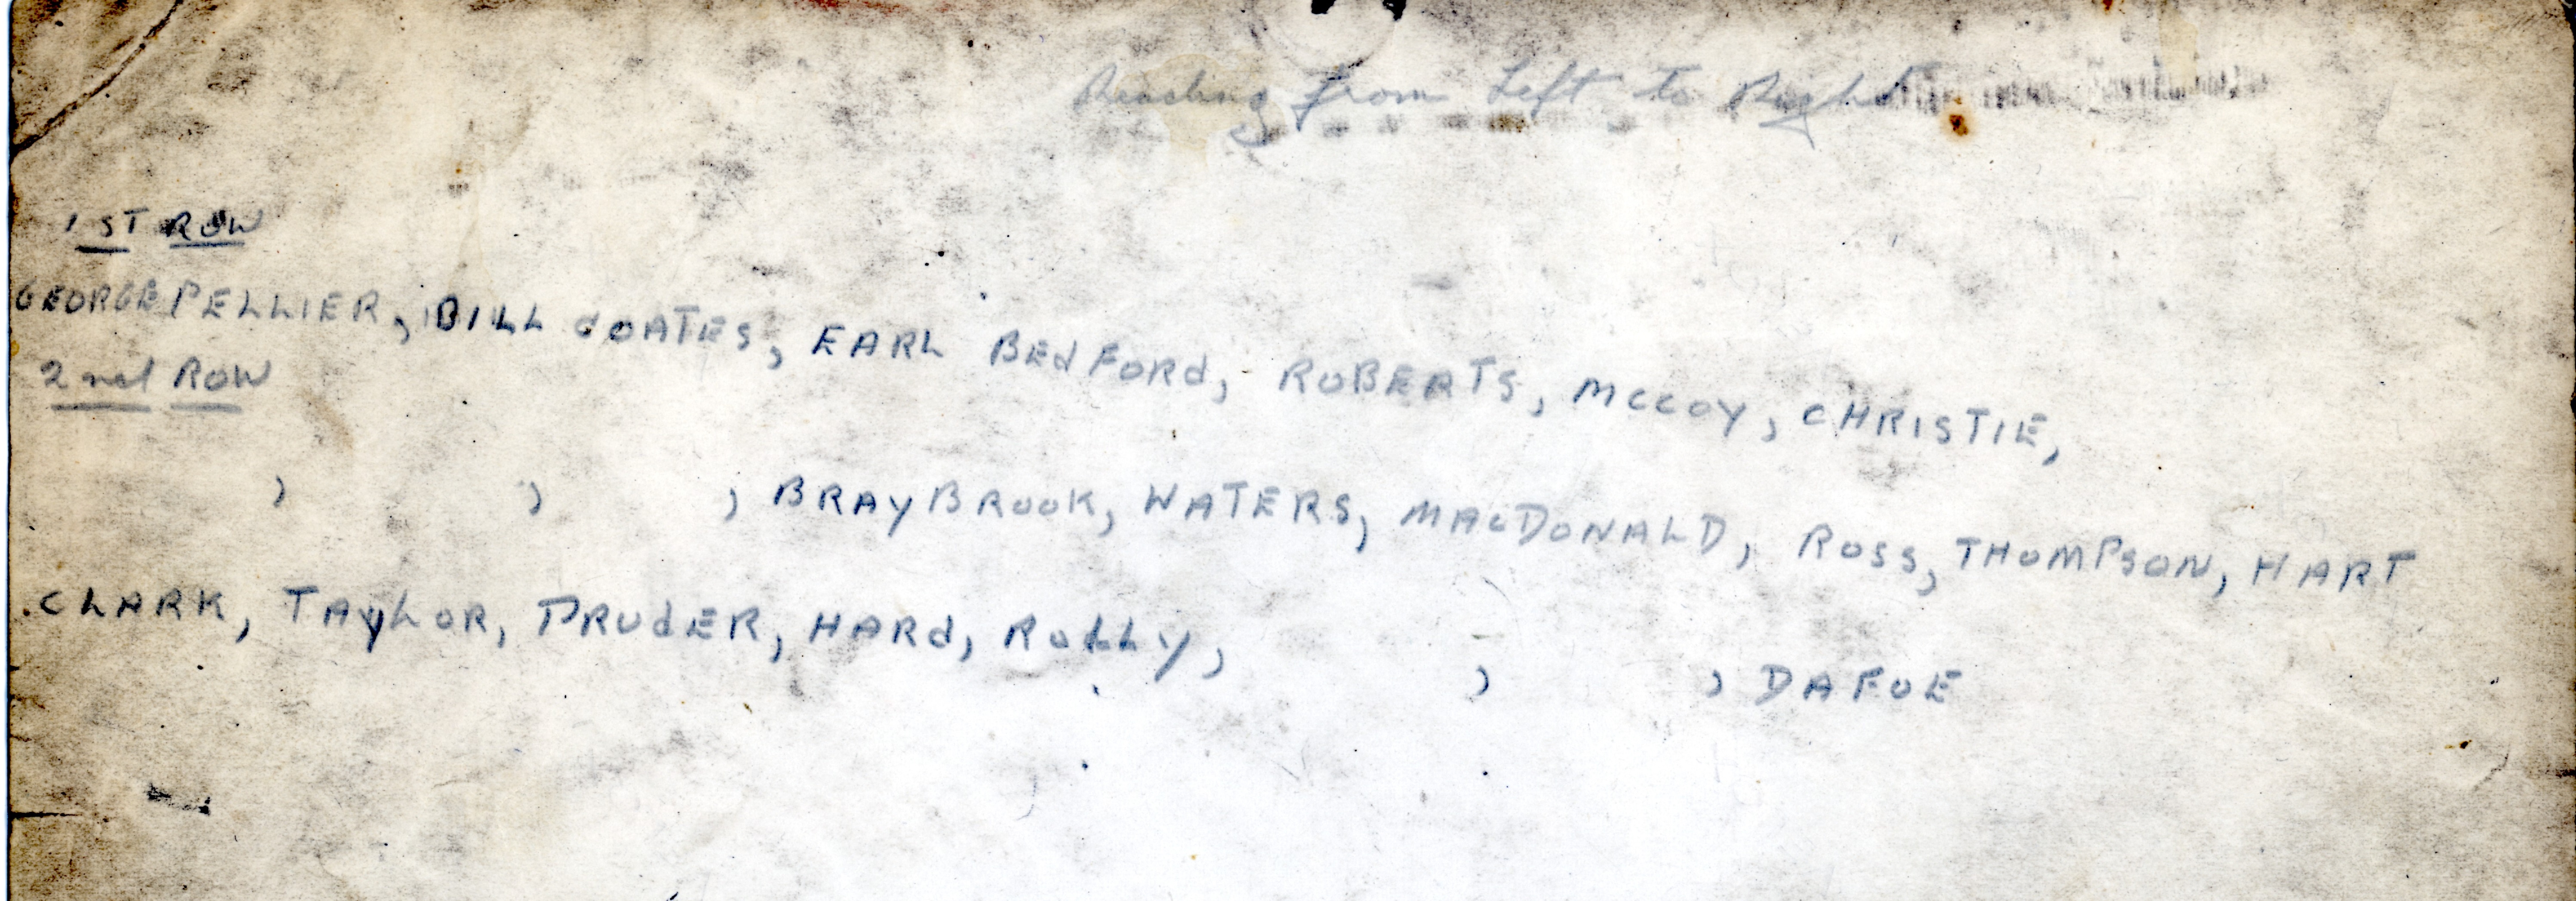 Reading from Left to Right
1 ST ROW
GEORGE PELLIER, BILL COATES, EARL BEdFORd, ROBERTS, MCCOY, CHRISTIE,
2nd ROW
, , , BRAYBROOK, WATERS, MACDONALD, ROSS, THOMPSON, HART
CLARK, TAYLOR, PRUdER, HARd, ROLLY, , , DAFOE